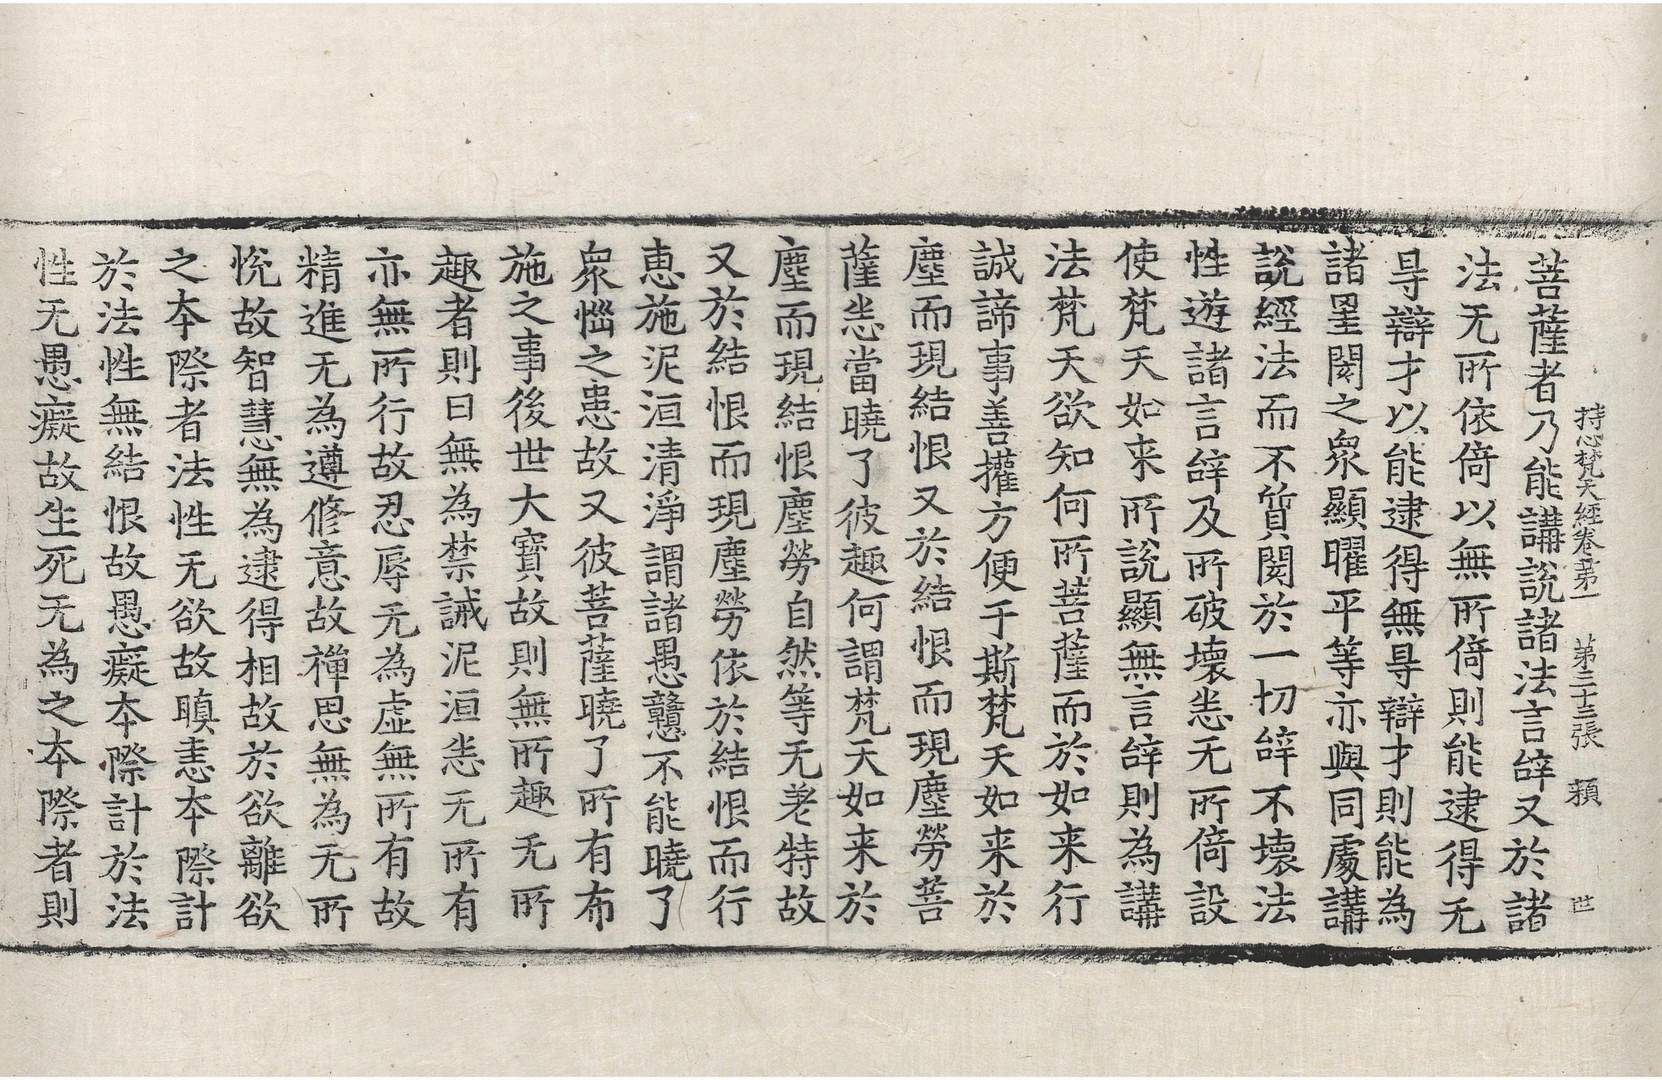 菩薩者乃能講說諸法言辝又於諸
持心梵天經卷第一 第二十三張 頪 世
法无所依倚以無所倚則能逮得无
㝵辯才以能逮得無㝵辯才則能為
諸星閡之衆顯曜平等亦與同處講
說經法而不質閡於一切辝不壞法
性遊諸言辝及所破壞恙无所倚設
使梵天如来所說顯無言辝則為講
法梵天欲知何所菩薩而於如来行
誠諦事善攉方便于斯梵天如来於
塵而現結恨又於結恨而現塵勞菩
薩恙當曉了彼趣何謂梵天如来於
塵而現結恨塵勞自然等无差特故
又於結恨而現塵勞依於結恨而行
惠施泥洹清淨謂諸愚戇不能曉了
衆惱之患故又彼菩薩曉了所有布
施之事後世大寶故則無所趣无所
趣者則曰無為禁誡泥洹恙无所有
亦無所行故忍辱无為虛無所有故
精進无為遵修意故禪思無為无所
恱故智慧無為逮得相故於欲離欲
之本際者法性无欲故瞋恚本際計
於法性無結恨故愚癡本際計於法
性无愚癡故生死无為之本際者則